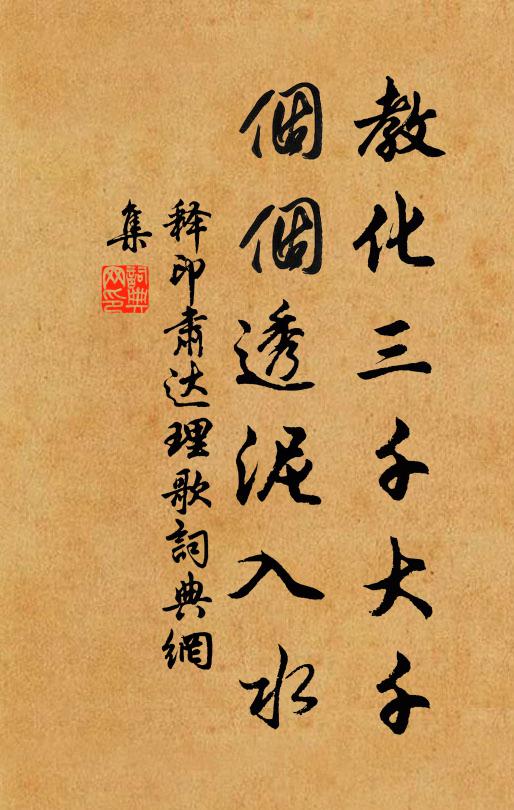 教化三千大千
個個透泥入水
释印肃达理歌詞典網
集
詞典網印